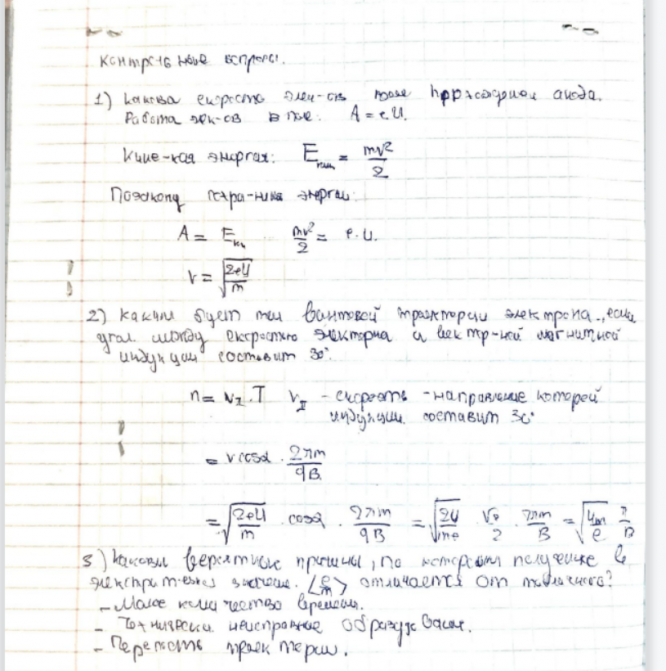 Контрольные вопросы.
1) Какова скорость элек-ов после прохождения анода.
Работа эл-ов в поле: A = e.U.
Кине-кая энергия: Eкин = mv²/2
По закону сохра-ния энергии:
A = Eкин mv²/2 = e.U.
v = √(2eU/m)
2) Каким будет тип винтовой траектории электрона, если
угол между скоростью электрона и вектр-ной магнитной
индукции составит 30°.
n = v_II . T v_II - скорость - направление которой
индукции составит 30°
= v cosα . 2πm/qB
= √(2eU/m) . cosα . 2πm/qB = √(2U/me) √3/2 . 2πm/B = √(Um/e) π/B
3) Каковы вероятные причины, по которым полученное в
значение. отличается от табличного?
- Малое количество времени.
- Технически неисправные
-